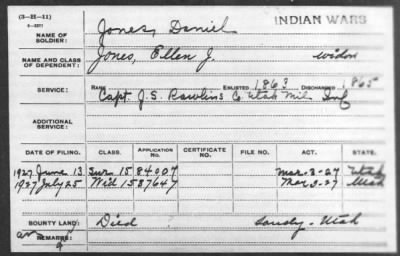 (3-H-11)
6-3277
INDIAN WARS
NAME OF SOLDIER: Jones, Daniel
NAME AND CLASS OF DEPENDENT: Jones, Ellen J. widow
SERVICE: RANK ENLISTED 1863 DISCHARGED 1865
Capt. J. S. Rawlins Co Utah Mil Inf
ADDITIONAL SERVICE:
DATE OF FILING. CLASS. APPLICATION No. CERTIFICATE No. FILE NO. ACT. STATE.
1927 June 13 Sur. 1584007 Mar-3-27 Utah
1927 July 25 Wid 1587647 Mar 3-27 Utah
BOUNTY LAND: Died Sandy-Utah
REMARKS: